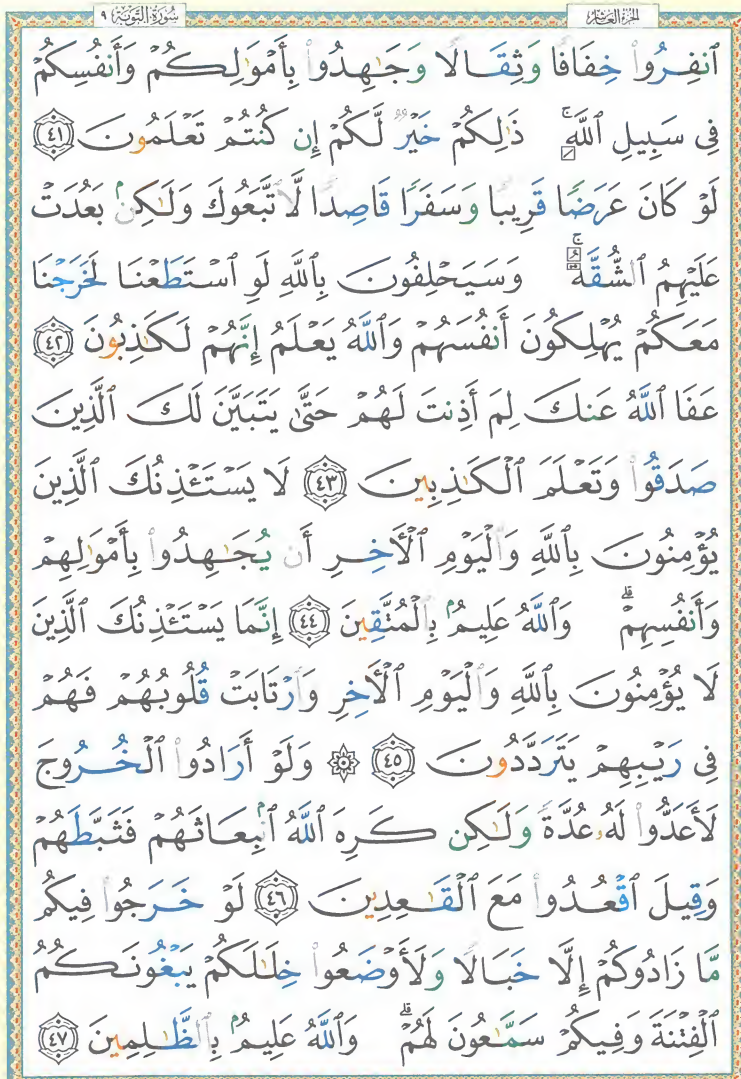 سُورَةُ التَّوْبَةِ ٩
الجُزْءُ العَاشِرُ
ٱنفِرُوا۟ خِفَافًا وَثِقَالًا وَجَـٰهِدُوا۟ بِأَمْوَٰلِكُمْ وَأَنفُسِكُمْ
فِى سَبِيلِ ٱللَّهِ ۚ ذَٰلِكُمْ خَيْرٌ لَّكُمْ إِن كُنتُمْ تَعْلَمُونَ ٤١
لَوْ كَانَ عَرَضًا قَرِيبًا وَسَفَرًا قَاصِدًا لَّٱتَّبَعُوكَ وَلَـٰكِنۢ بَعُدَتْ
عَلَيْهِمُ ٱلشُّقَّةُ ۚ وَسَيَحْلِفُونَ بِٱللَّهِ لَوِ ٱسْتَطَعْنَا لَخَرَجْنَا
مَعَكُمْ يُهْلِكُونَ أَنفُسَهُمْ وَٱللَّهُ يَعْلَمُ إِنَّهُمْ لَكَـٰذِبُونَ ٤٢
عَفَا ٱللَّهُ عَنكَ لِمَ أَذِنتَ لَهُمْ حَتَّىٰ يَتَبَيَّنَ لَكَ ٱلَّذِينَ
صَدَقُوا۟ وَتَعْلَمَ ٱلْكَـٰذِبِينَ ٤٣ لَا يَسْتَـْٔذِنُكَ ٱلَّذِينَ
يُؤْمِنُونَ بِٱللَّهِ وَٱلْيَوْمِ ٱلْـَٔاخِرِ أَن يُجَـٰهِدُوا۟ بِأَمْوَٰلِهِمْ
وَأَنفُسِهِمْ ۗ وَٱللَّهُ عَلِيمٌۢ بِٱلْمُتَّقِينَ ٤٤ إِنَّمَا يَسْتَـْٔذِنُكَ ٱلَّذِينَ
لَا يُؤْمِنُونَ بِٱللَّهِ وَٱلْيَوْمِ ٱلْـَٔاخِرِ وَٱرْتَابَتْ قُلُوبُهُمْ فَهُمْ
فِى رَيْبِهِمْ يَتَرَدَّدُونَ ٤٥ ۞ وَلَوْ أَرَادُوا۟ ٱلْخُرُوجَ
لَأَعَدُّوا۟ لَهُۥ عُدَّةً وَلَـٰكِن كَرِهَ ٱللَّهُ ٱنۢبِعَاثَهُمْ فَثَبَّطَهُمْ
وَقِيلَ ٱقْعُدُوا۟ مَعَ ٱلْقَـٰعِدِينَ ٤٦ لَوْ خَرَجُوا۟ فِيكُم
مَّا زَادُوكُمْ إِلَّا خَبَالًا وَلَأَوْضَعُوا۟ خِلَـٰلَكُمْ يَبْغُونَكُمُ
ٱلْفِتْنَةَ وَفِيكُمْ سَمَّـٰعُونَ لَهُمْ ۗ وَٱللَّهُ عَلِيمٌۢ بِٱلظَّـٰلِمِينَ ٤٧